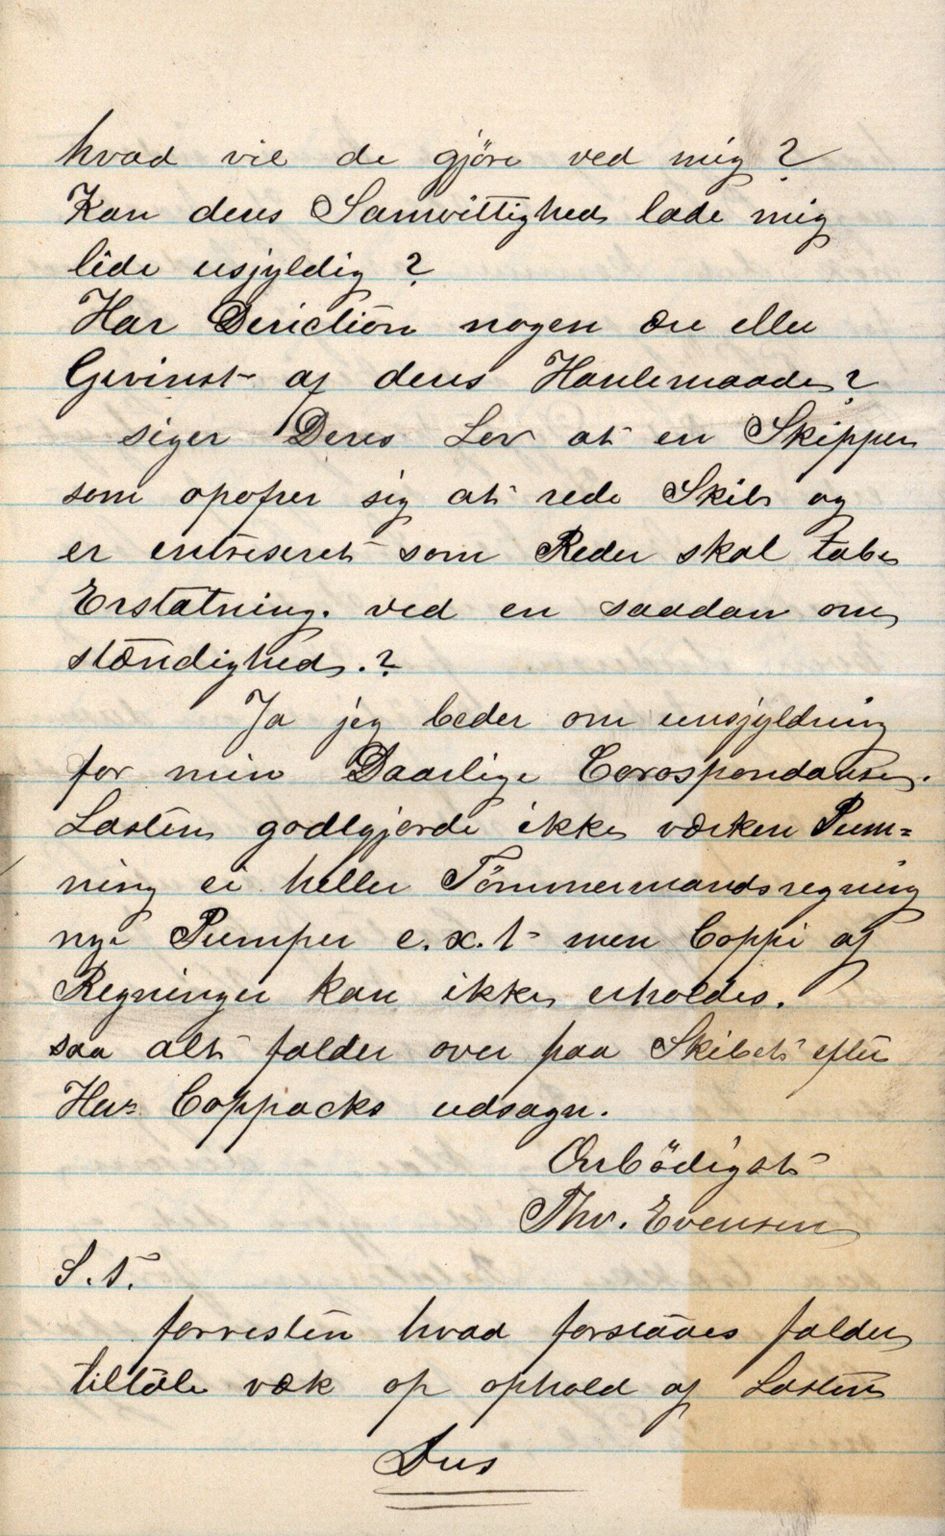 hvad vil de gjöre ved mig?
Kan deres Samvittighed lade mig
lide usjyldig?
Har Deriction nogen ære eller
Gevinst af deres Hanlemaade?
siger Deres Lov at en Skipper
som opofrer sig at rede Skib og
er entreseret som Reder skal tabe
Erstatning. ved en saadan om
stændighed.?
Ja jeg beder om unsjyldning
for min Daarlige Corospondanse.
Lasten godtgjorde ikke værken Pum=
ning ei heller Tömmermandsregning
nye Pumper e.x.t men Coppi af
Regninger kan ikke erholdes.
saa alt falder over paa Skibet efter
Her Coppacks udsagn.
Ærbödigst
Thv. Evensen
S.T.
forresten hvad forstaaes falder
væk op ophold af Lasten
Dus